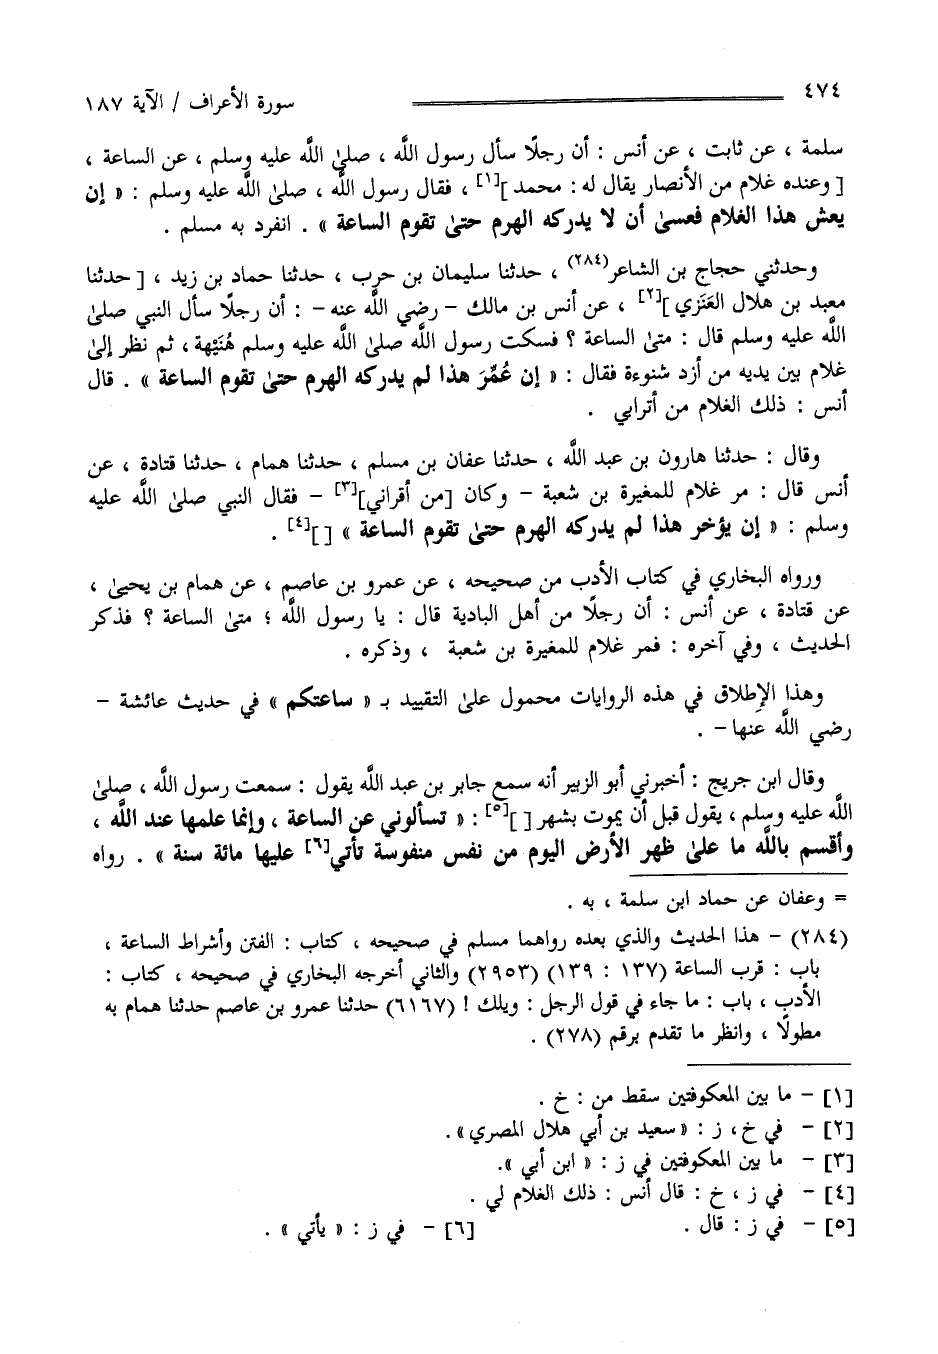 ٤٧٤ سورة الأعراف / الآية ١٨٧
سلمة ، عن ثابت ، عن أنس : أن رجلًا سأل رسول اللَّه ، صلىٰ اللَّه عليه وسلم ، عن الساعة ،
[ وعنده غلام من الأنصار يقال له : محمد ][١] ، فقال رسول اللَّه ، صلىٰ اللَّه عليه وسلم : « إن
يعش هذا الغلام فعسىٰ أن لا يدركه الهرم حتىٰ تقوم الساعة » . انفرد به مسلم .
وحدثني حجاج بن الشاعر(٢٨٤) ، حدثنا سليمان بن حرب ، حدثنا حماد بن زيد ، [ حدثنا
معبد بن هلال العَنَزي ][٢] ، عن أنس بن مالك - رضي اللَّه عنه - : أن رجلًا سأل النبي صلىٰ
اللَّه عليه وسلم قال : متىٰ الساعة ؟ فسكت رسول اللَّه صلىٰ اللَّه عليه وسلم هُنَيْهة ، ثم نظر إلىٰ
غلام بين يديه من أزد شنوءة فقال : « إن عُمِّرَ هذا لم يدركه الهرم حتىٰ تقوم الساعة » . قال
أنس : ذلك الغلام من أترابي .
وقال : حدثنا هارون بن عبد اللَّه ، حدثنا عفان بن مسلم ، حدثنا همام ، حدثنا قتادة ، عن
أنس قال : مر غلام للمغيرة بن شعبة - وكان [من أقراني][٣] - فقال النبي صلىٰ اللَّه عليه
وسلم : « إن يؤخر هذا لم يدركه الهرم حتىٰ تقوم الساعة » [ ][٤] .
ورواه البخاري في كتاب الأدب من صحيحه ، عن عمرو بن عاصم ، عن همام بن يحيىٰ ،
عن قتادة ، عن أنس : أن رجلًا من أهل البادية قال : يا رسول اللَّه ؛ متىٰ الساعة ؟ فذكر
الحديث ، وفي آخره : فمر غلام للمغيرة بن شعبة ، وذكره .
وهذا الإِطلاق في هذه الروايات محمول علىٰ التقييد بـ « ساعتكم » في حديث عائشة -
رضي اللَّه عنها - .
وقال ابن جريج : أخبرني أبو الزبير أنه سمع جابر بن عبد اللَّه يقول : سمعت رسول اللَّه ، صلىٰ
اللَّه عليه وسلم ، يقول قبل أن يموت بشهر [ ][٥] : « تسألوني عن الساعة ، وإنما علمها عند اللَّه ،
وأقسم باللَّه ما علىٰ ظهر الأرض اليوم من نفس منفوسة تأتي[٦] عليها مائة سنة » . رواه
= وعفان عن حماد ابن سلمة ، به .
(٢٨٤) - هذا الحديث والذي بعده رواهما مسلم في صحيحه ، كتاب : الفتن وأشراط الساعة ،
باب : قرب الساعة (١٣٧ : ١٣٩) (٢٩٥٣) والثاني أخرجه البخاري في صحيحه ، كتاب :
الأدب ، باب : ما جاء في قول الرجل : ويلك ! (٦١٦٧) حدثنا عمرو بن عاصم حدثنا همام به
مطولًا ، وانظر ما تقدم برقم (٢٧٨) .
[١] - ما بين المعكوفتين سقط من : خ .
[٢] - في خ، ز : «سعيد بن أبي هلال المصري».
[٣] - ما بين المعكوفتين في ز : « ابن أبي ».
[٤] - في ز ، خ : قال أنس : ذلك الغلام لي .
[٥] - في ز : قال . [٦] - في ز : « يأتي » .